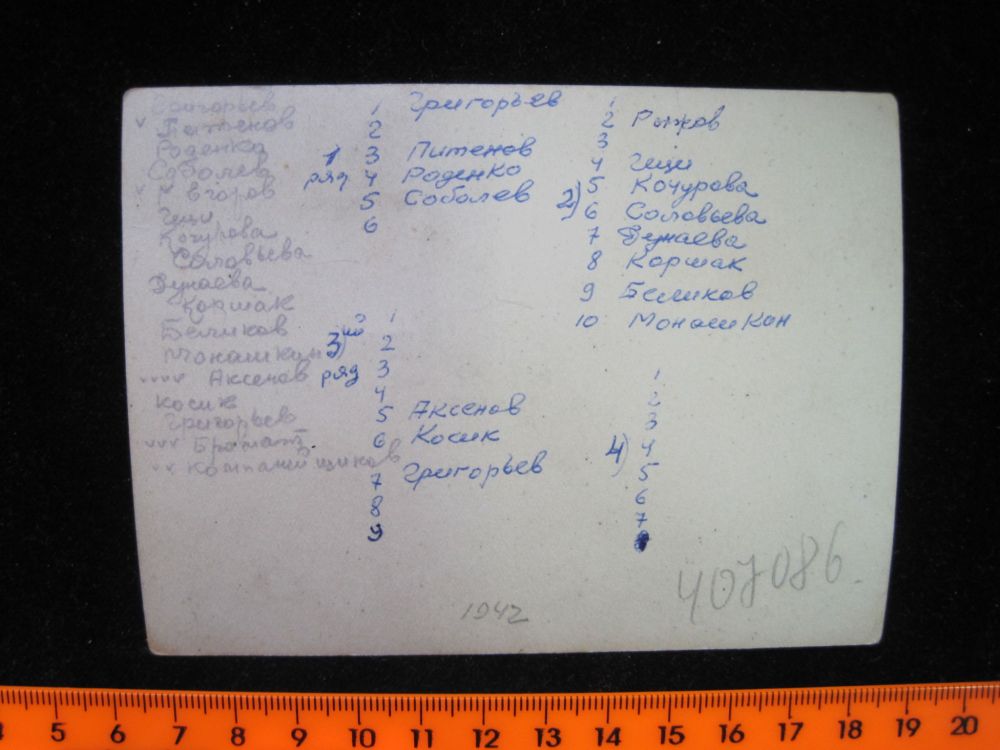 Григорьев
v Питенов
Роденко
Соболев
v Егоров
Гещи
Кочурова
Соловьева
Дунаева
Коршак
Беликов
Монашкин
vvvv Аксенов
Косик
Григорьев
vvv
vv Компанейщиков
1 ряд
1 Григорьев
2
3 Питенов
4 Роденко
5 Соболев
6
2)
1
2 Рыжов
3
4 Гещи
5 Кочурова
6 Соловьева
7 Дунаева
8 Коршак
9 Беликов
10 Монашкин
3)ий ряд
1
2
3
4
5 Аксенов
6 Косик
7 Григорьев
8
9
4)
1
2
3
4
5
6
7
8
1942
407086.
4 5 6 7 8 9 10 11 12 13 14 15 16 17 18 19 20